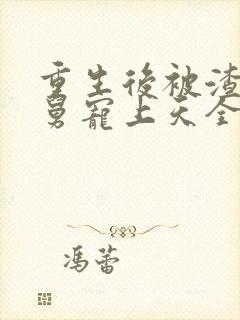 重生後被渣
舅寵上天全
馮蕾